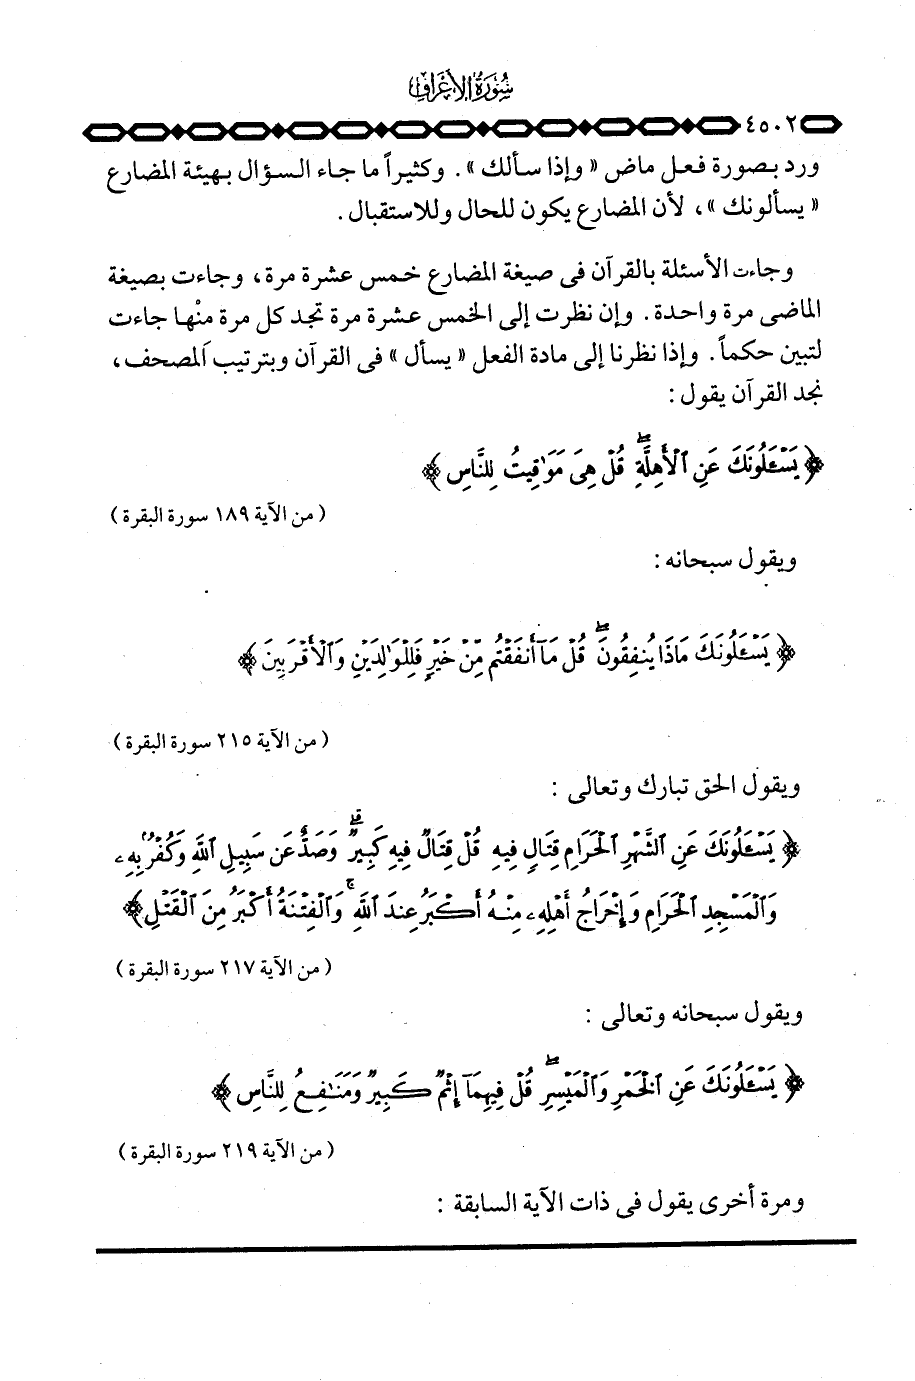 سُورَةُ الأَعْرَافِ
٤٥٠٢
ورد بصورة فعل ماض « وإذا سألك » . وكثيراً ما جاء السؤال بهيئة المضارع
« يسألونك » ، لأن المضارع يكون للحال وللاستقبال .
وجاءت الأسئلة بالقرآن فى صيغة المضارع خمس عشرة مرة ، وجاءت بصيغة
الماضى مرة واحدة . وإن نظرت إلى الخمس عشرة مرة تجد كل مرة منْها جاءت
لتبين حكماً . وإذا نظرنا إلى مادة الفعل « يسأل » فى القرآن وبترتيب المصحف ،
نجد القرآن يقول :
﴿ يَسْـَٔلُونَكَ عَنِ ٱلْأَهِلَّةِ ۖ قُلْ هِىَ مَوَٰقِيتُ لِلنَّاسِ ﴾
( من الآية ١٨٩ سورة البقرة )
ويقول سبحانه :
﴿ يَسْـَٔلُونَكَ مَاذَا يُنفِقُونَ ۖ قُلْ مَآ أَنفَقْتُم مِّنْ خَيْرٍ فَلِلْوَٰلِدَيْنِ وَٱلْأَقْرَبِينَ ﴾
( من الآية ٢١٥ سورة البقرة )
ويقول الحق تبارك وتعالى :
﴿ يَسْـَٔلُونَكَ عَنِ ٱلشَّهْرِ ٱلْحَرَامِ قِتَالٍ فِيهِ قُلْ قِتَالٌ فِيهِ كَبِيرٌ ۖ وَصَدٌّ عَن سَبِيلِ ٱللَّهِ وَكُفْرٌۢ بِهِۦ
وَٱلْمَسْجِدِ ٱلْحَرَامِ وَإِخْرَاجُ أَهْلِهِۦ مِنْهُ أَكْبَرُ عِندَ ٱللَّهِ ۚ وَٱلْفِتْنَةُ أَكْبَرُ مِنَ ٱلْقَتْلِ ﴾
( من الآية ٢١٧ سورة البقرة )
ويقول سبحانه وتعالى :
﴿ يَسْـَٔلُونَكَ عَنِ ٱلْخَمْرِ وَٱلْمَيْسِرِ ۖ قُلْ فِيهِمَآ إِثْمٌ كَبِيرٌ وَمَنَٰفِعُ لِلنَّاسِ ﴾
( من الآية ٢١٩ سورة البقرة )
ومرة أخرى يقول فى ذات الآية السابقة :